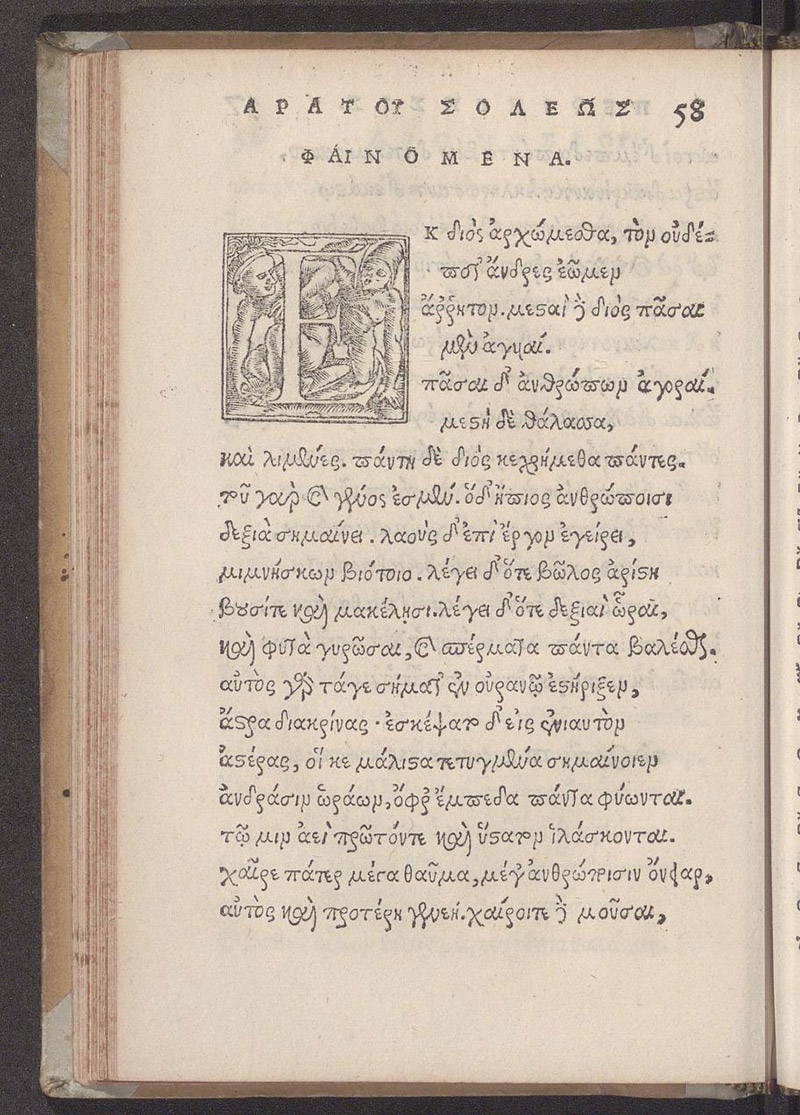 ΑΡΑΤΟΥ ΣΟΛΕΩΣ 58
ΦΑΙΝΟΜΕΝΑ.
Εκ διὸς ἀρχώμεσθα, τὸν οὐδέ=
ποτ' ἄνδρες ἐῶμεν
ἄῤῥητον. μεσαὶ δὲ διὸς πᾶσαι
μὲν ἀγυιαί.
πᾶσαι δ' ἀνθρώπων ἀγοραί.
μεστὴ δὲ θάλασσα,
καὶ λιμένες. πάντη δὲ διὸς κεχρήμεθα πάντες.
τοῦ γαρ καὶ γένος ἐσμέν. ὅδ' ἤπιος ἀνθρώποισι
δεξιὰ σημαίνει. λαοὺς δ' ἐπὶ ἔργον ἐγείρει,
μιμνήσκων βιότοιο. λέγει δ' ὅτε βῶλος ἀρίστη
βουσίτε καὶ μακέλῃσι. λέγει δ' ὅτε δεξιαὶ ὧραι,
καὶ φυτὰ γυρῶσαι, καὶ σπέρματα πάντα βαλέσθαι.
αὐτὸς γὰρ τάγε σήματ' ἐν οὐρανῷ ἐστήριξεν,
ἄστρα διακρίνας. ἐσκέψατο δ' εἰς ἐνιαυτὸν
ἀστέρας, οἵ κε μάλιστα τετυγμένα σημαίνοιεν
ἀνδράσιν ὡράων, ὄφρ' ἔμπεδα πάντα φύωνται.
τῷ μιν ἀεὶ πρῶτόντε καὶ ὕστατον ἱλάσκονται.
χαῖρε πάτερ μέγα θαῦμα, μέγ' ἀνθρώποισιν ὄνειαρ,
αὐτὸς καὶ προτέρη γενεή. χαίροιτε δὲ μοῦσαι,